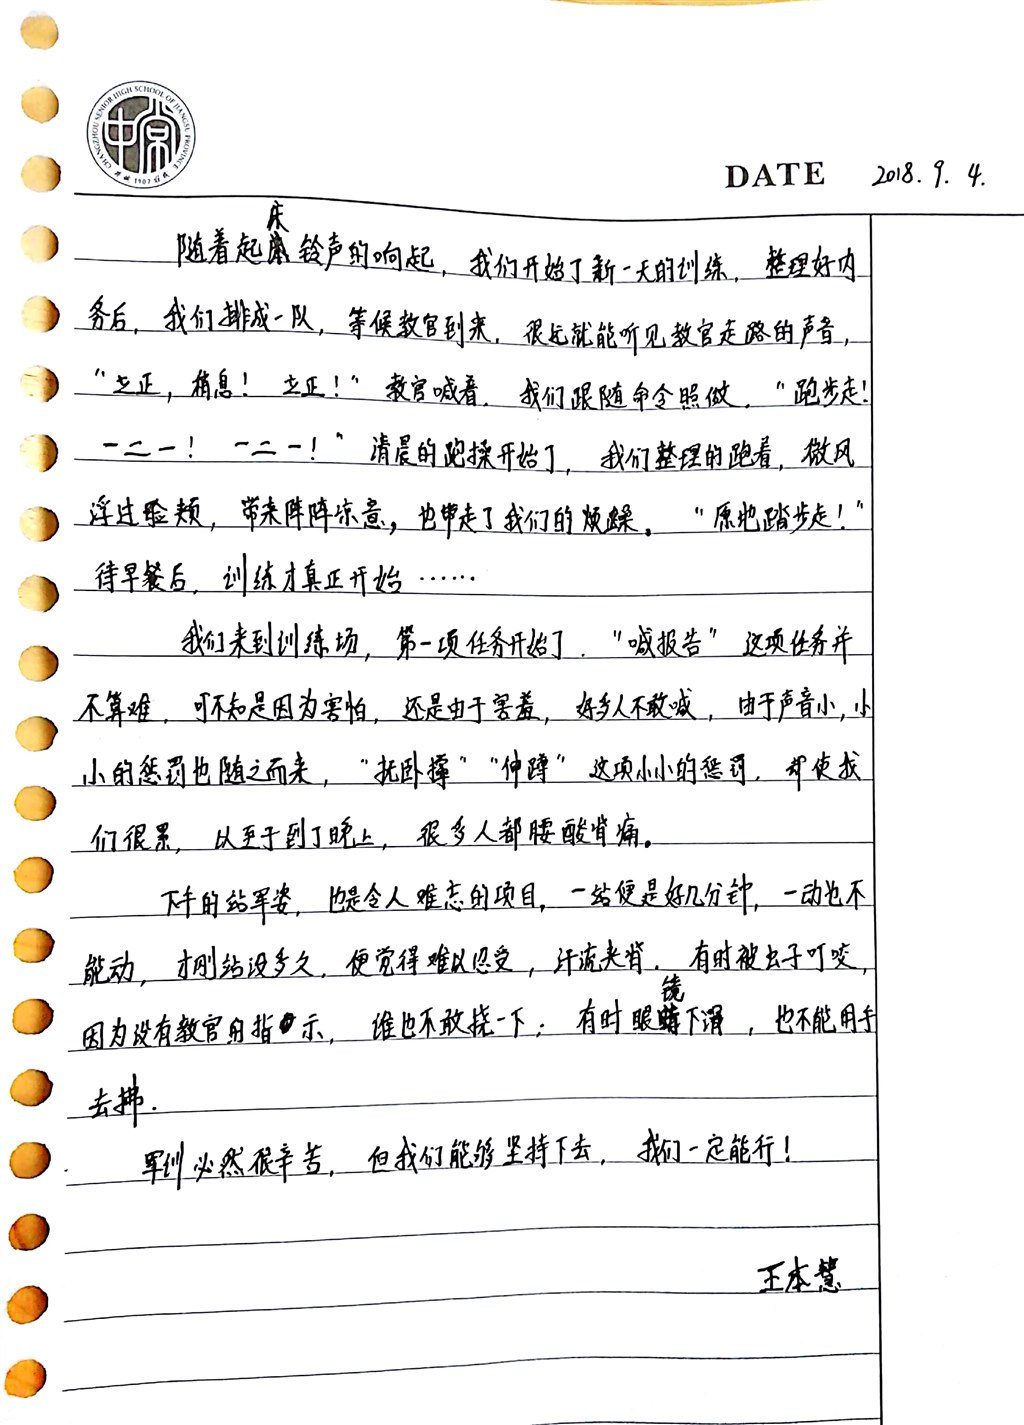 CHANGZHOU SENIOR HIGH SCHOOL OF JIANGSU PROVINCE
1907
DATE 2018.9.4.
随着起床铃声的响起，我们开始了新一天的训练，整理好内
务后，我们排成一队，等候教官到来，很远就能听见教官走路的声音，
“立正，稍息！立正！”教官喊着，我们跟随命令照做，“跑步走！
一二一！一二一！”清晨的跑操开始了，我们整理的跑着，微风
浮过脸颊，带来阵阵凉意，也带走了我们的烦躁。“原地踏步走！”
待早餐后，训练才真正开始……
我们来到训练场，第一项任务开始了．“喊报告”这项任务并
不算难，可不知是因为害怕，还是由于害羞，好多人不敢喊，由于声音小，小
小的惩罚也随之而来，“抚卧撑”“伸蹲”这项小小的惩罚，却使我
们很累，以至于到了晚上，很多人都腰酸背痛。
下午的站军姿，也是令人难忘的项目，一站便是好几分钟，一动也不
能动，才刚站没多久．便觉得难以忍受，汗流夹背．有时被虫子叮咬，
因为没有教官的指示，谁也不敢挠一下；有时眼镜下滑，也不能用手
去拂．
军训必然很辛苦，但我们能够坚持下去，我们一定能行！
王本慧